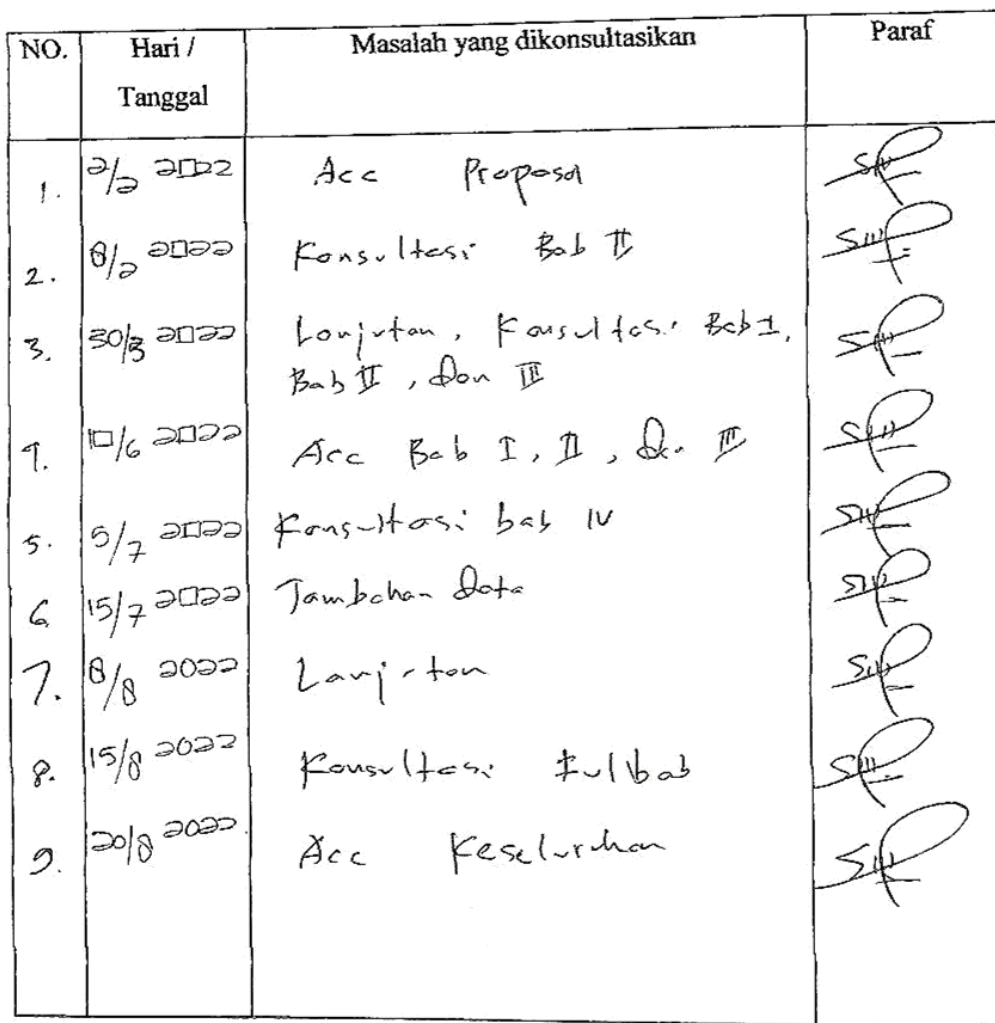 NO. Hari / Tanggal Masalah yang dikonsultasikan Paraf
1. 2/2 2022 Acc Proposal
2. 8/2 2022 Konsultasi Bab II
3. 30/3 2022 Lanjutan, Konsultasi Bab I,
Bab II, dan III
4. 10/6 2022 Acc Bab I, II, dan III
5. 5/7 2022 Konsultasi bab IV
6. 15/7 2022 Tambahan Data
7. 8/8 2022 Lanjutan
8. 15/8 2022 Konsultasi Fullbab
9. 20/8 2022 Acc Keseluruhan